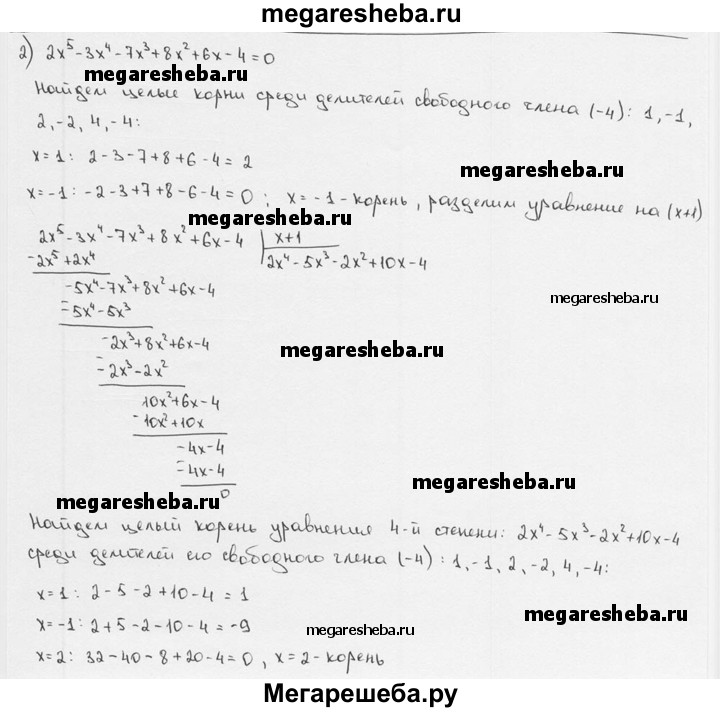 megaresheba.ru
2) 2x⁵-3x⁴-7x³+8x²+6x-4=0
megaresheba.ru
Найдем целые корни среди делителей свободного члена (-4): 1,-1,
2,-2, 4,-4:
x=1: 2-3-7+8+6-4=2
megaresheba.ru
x=-1: -2-3+7+8-6-4=0; x=-1-корень, разделим уравнение на (x+1)
megaresheba.ru
2x⁵-3x⁴-7x³+8x²+6x-4 | x+1
-2x⁵+2x⁴ 2x⁴-5x³-2x²+10x-4
-5x⁴-7x³+8x²+6x-4
megaresheba.ru
--5x⁴-5x³
-2x³+8x²+6x-4
megaresheba.ru
--2x³-2x²
10x²+6x-4
-10x²+10x
-4x-4
--4x-4
megaresheba.ru
0
megaresheba.ru
Найдем целый корень уравнения 4-й степени: 2x⁴-5x³-2x²+10x-4
среди делителей его свободного члена (-4): 1,-1, 2,-2, 4,-4:
x=1: 2-5-2+10-4=1
megaresheba.ru
x=-1: 2+5-2-10-4=-9
megaresheba.ru
x=2: 32-40-8+20-4=0, x=2-корень
Мегарешеба.ру